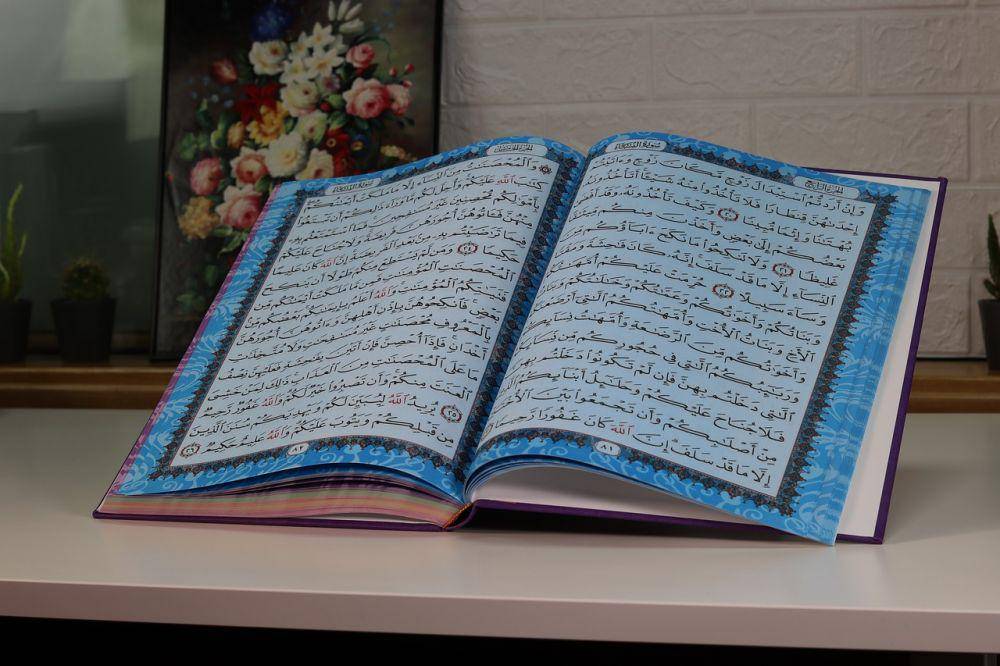 الجزء الرابع سورة النساء
وَإِنْ أَرَدتُّمُ ٱسْتِبْدَالَ زَوْجٍ مَّكَانَ زَوْجٍ وَءَاتَيْتُمْ
إِحْدَىٰهُنَّ قِنطَارًا فَلَا تَأْخُذُوا۟ مِنْهُ شَيْـًٔا أَتَأْخُذُونَهُۥ
بُهْتَـٰنًا وَإِثْمًا مُّبِينًا ٢٠ وَكَيْفَ تَأْخُذُونَهُۥ وَقَدْ أَفْضَىٰ
بَعْضُكُمْ إِلَىٰ بَعْضٍ وَأَخَذْنَ مِنكُم مِّيثَـٰقًا
غَلِيظًا ٢١ وَلَا تَنكِحُوا۟ مَا نَكَحَ ءَابَآؤُكُم مِّنَ
ٱلنِّسَآءِ إِلَّا مَا قَدْ سَلَفَ إِنَّهُۥ كَانَ فَـٰحِشَةً وَمَقْتًا
وَسَآءَ سَبِيلًا ٢٢ حُرِّمَتْ عَلَيْكُمْ أُمَّهَـٰتُكُمْ
وَبَنَاتُكُمْ وَأَخَوَٰتُكُمْ وَعَمَّـٰتُكُمْ وَخَـٰلَـٰتُكُمْ وَبَنَاتُ
ٱلْأَخِ وَبَنَاتُ ٱلْأُخْتِ وَأُمَّهَـٰتُكُمُ ٱلَّـٰتِىٓ أَرْضَعْنَكُمْ
وَأَخَوَٰتُكُم مِّنَ ٱلرَّضَـٰعَةِ وَأُمَّهَـٰتُ نِسَآئِكُمْ
وَرَبَـٰٓئِبُكُمُ ٱلَّـٰتِى فِى حُجُورِكُم مِّن نِّسَآئِكُمُ
ٱلَّـٰتِى دَخَلْتُم بِهِنَّ فَإِن لَّمْ تَكُونُوا۟ دَخَلْتُم بِهِنَّ
فَلَا جُنَاحَ عَلَيْكُمْ وَحَلَـٰٓئِلُ أَبْنَآئِكُمُ ٱلَّذِينَ
مِنْ أَصْلَـٰبِكُمْ وَأَن تَجْمَعُوا۟ بَيْنَ ٱلْأُخْتَيْنِ
إِلَّا مَا قَدْ سَلَفَ إِنَّ ٱللَّهَ كَانَ غَفُورًا رَّحِيمًا
٨١
الجزء الخامس سورة النساء
وَٱلْمُحْصَنَـٰتُ مِنَ ٱلنِّسَآءِ إِلَّا مَا مَلَكَتْ أَيْمَـٰنُكُمْ
كِتَـٰبَ ٱللَّهِ عَلَيْكُمْ وَأُحِلَّ لَكُم مَّا وَرَآءَ ذَٰلِكُمْ أَن تَبْتَغُوا۟
بِأَمْوَٰلِكُم مُّحْصِنِينَ غَيْرَ مُسَـٰفِحِينَ فَمَا ٱسْتَمْتَعْتُم بِهِۦ
مِنْهُنَّ فَـَٔاتُوهُنَّ أُجُورَهُنَّ فَرِيضَةً وَلَا جُنَاحَ عَلَيْكُمْ
فِيمَا تَرَٰضَيْتُم بِهِۦ مِنۢ بَعْدِ ٱلْفَرِيضَةِ إِنَّ ٱللَّهَ كَانَ عَلِيمًا
حَكِيمًا ٢٤ وَمَن لَّمْ يَسْتَطِعْ مِنكُمْ طَوْلًا أَن يَنكِحَ
ٱلْمُحْصَنَـٰتِ ٱلْمُؤْمِنَـٰتِ فَمِن مَّا مَلَكَتْ أَيْمَـٰنُكُم مِّن
فَتَيَـٰتِكُمُ ٱلْمُؤْمِنَـٰتِ وَٱللَّهُ أَعْلَمُ بِإِيمَـٰنِكُم بَعْضُكُم مِّنۢ
بَعْضٍ فَٱنكِحُوهُنَّ بِإِذْنِ أَهْلِهِنَّ وَءَاتُوهُنَّ أُجُورَهُنَّ
بِٱلْمَعْرُوفِ مُحْصَنَـٰتٍ غَيْرَ مُسَـٰفِحَـٰتٍ وَلَا مُتَّخِذَٰتِ
أَخْدَانٍ فَإِذَآ أُحْصِنَّ فَإِنْ أَتَيْنَ بِفَـٰحِشَةٍ فَعَلَيْهِنَّ نِصْفُ
مَا عَلَى ٱلْمُحْصَنَـٰتِ مِنَ ٱلْعَذَابِ ذَٰلِكَ لِمَنْ خَشِىَ
ٱلْعَنَتَ مِنكُمْ وَأَن تَصْبِرُوا۟ خَيْرٌ لَّكُمْ وَٱللَّهُ غَفُورٌ رَّحِيمٌ
٢٥ يُرِيدُ ٱللَّهُ لِيُبَيِّنَ لَكُمْ وَيَهْدِيَكُمْ سُنَنَ ٱلَّذِينَ
مِن قَبْلِكُمْ وَيَتُوبَ عَلَيْكُمْ وَٱللَّهُ عَلِيمٌ حَكِيمٌ ٢٦
٨٢